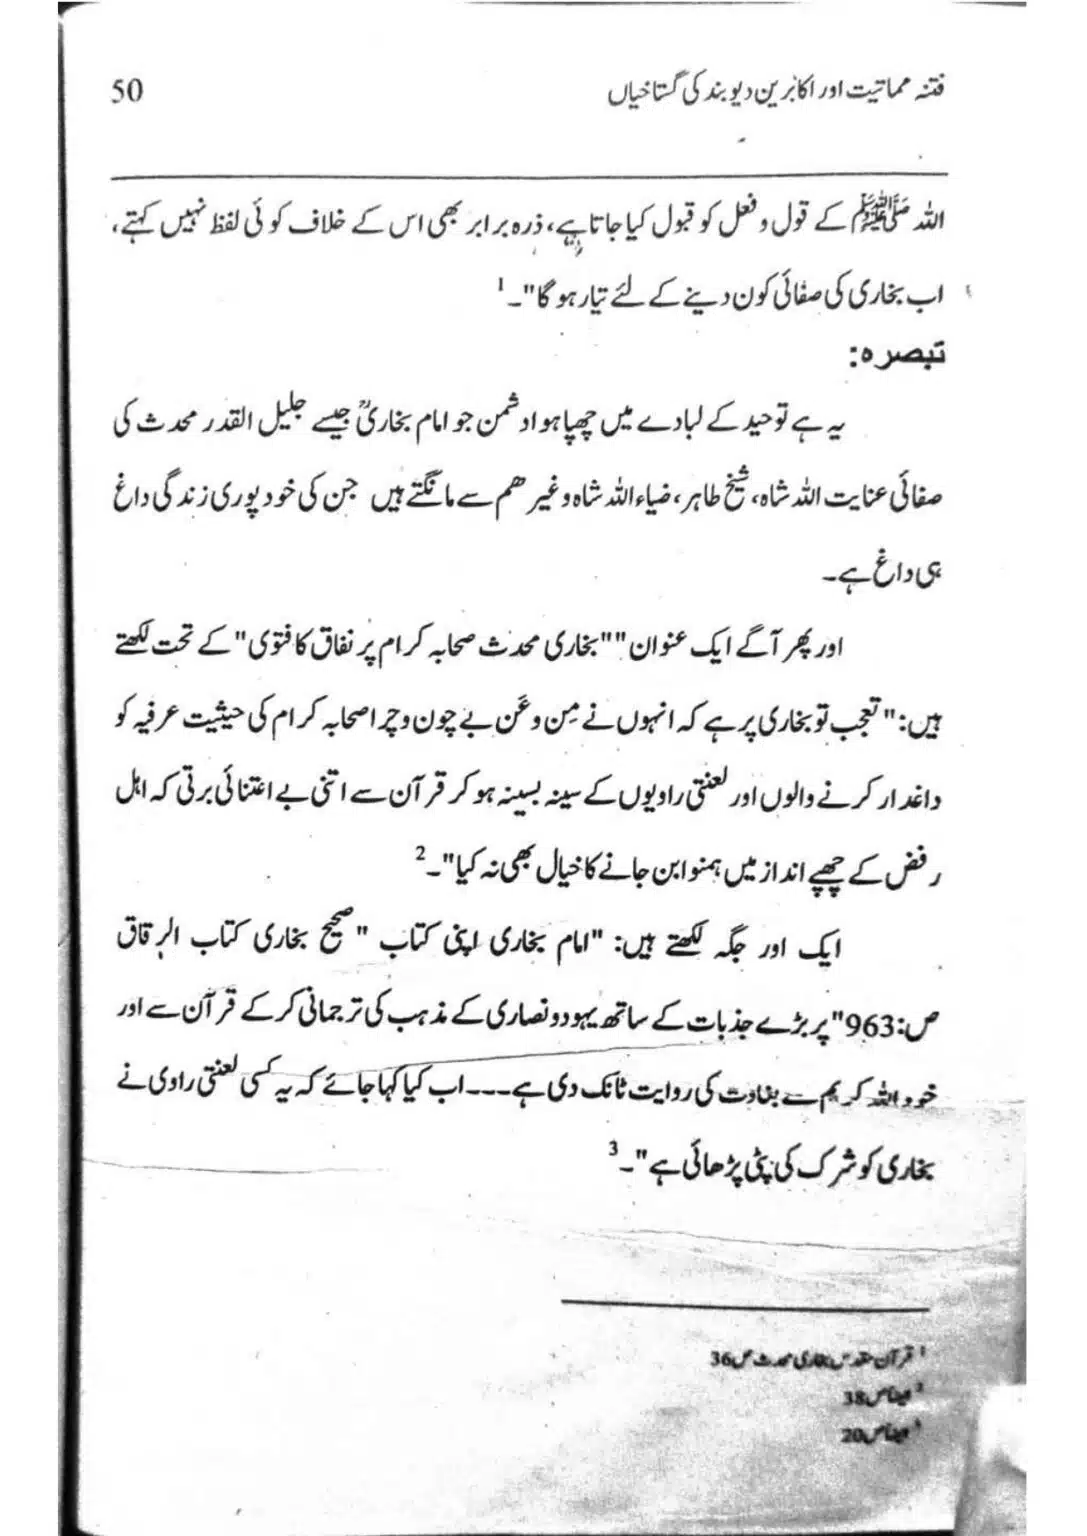 فتنہ مماتیت اور اکابرین دیوبند کی گستاخیاں 50
اللہ ﷺ کے قول و فعل کو قبول کیا جاتا ہے، ذرہ برابر بھی اس کے خلاف کوئی لفظ نہیں کہتے،
اب بخاری کی صفائی کون دینے کے لئے تیار ہو گا"۔1
تبصرہ:
یہ ہے توحید کے لبادے میں چھپا ہوا دشمن جو امام بخاریؒ جیسے جلیل القدر محدث کی
صفائی عنایت اللہ شاہ، شیخ طاہر، ضیاء اللہ شاہ وغیرھم سے مانگتے ہیں جن کی خود پوری زندگی داغ
ہی داغ ہے۔
اور پھر آگے ایک عنوان ""بخاری محدث صحابہ کرام پر نفاق کا فتوی" کے تحت لکھتے
ہیں: "تعجب تو بخاری پر ہے کہ انہوں نے مِن و عَن بے چون و چرا صحابہ کرام کی حیثیت عرفیہ کو
داغدار کرنے والوں اور لعنتی راویوں کے سینہ بسینہ ہو کر قرآن سے اتنی بے اعتنائی برتی کہ اہل
رفض کے چھپے انداز میں ہمنوا بن جانے کا خیال بھی نہ کیا"۔2
ایک اور جگہ لکھتے ہیں: "امام بخاری اپنی کتاب "صحیح بخاری کتاب الرقاق
ص:963" پر بڑے جذبات کے ساتھ یہود و نصاری کے مذہب کی ترجمانی کر کے قرآن سے اور
خود اللہ کریم سے بغاوت کی روایت ٹانک دی ہے۔۔۔اب کیا کہا جائے کہ یہ کسی لعنتی راوی نے
بخاری کو شرک کی پٹی پڑھائی ہے"۔3
1 قرآن مقدس بخاری محدث ص36
2 ایضاً ص38
3 ایضاً ص20